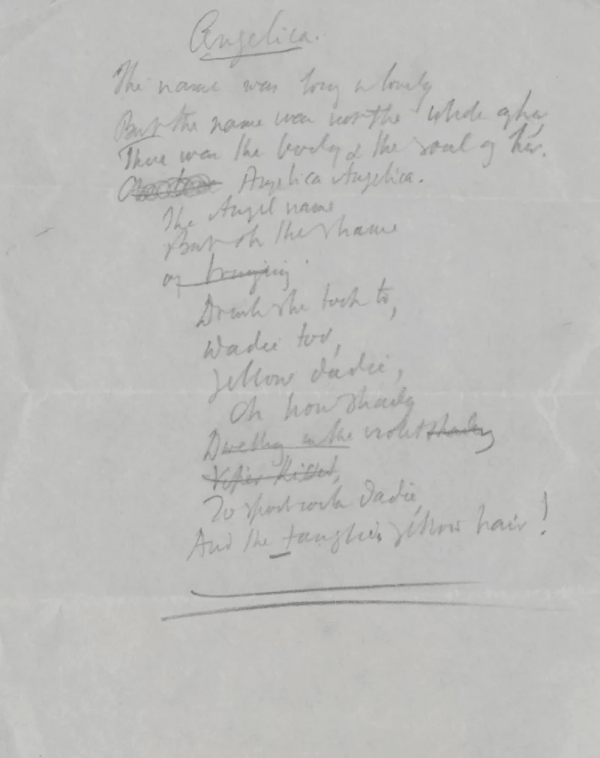 Angelica.
The name was long & lovely
But the name was not the whole of her
There was the body & the soul of her.
Angelica Angelica.
The Angel name
But oh the shame
of
Drink she took to,
too,
Yellow dadie,
Oh how shady
Dwelling in the violet shadey
To sport with dadie,
And the tangled yellow hair!